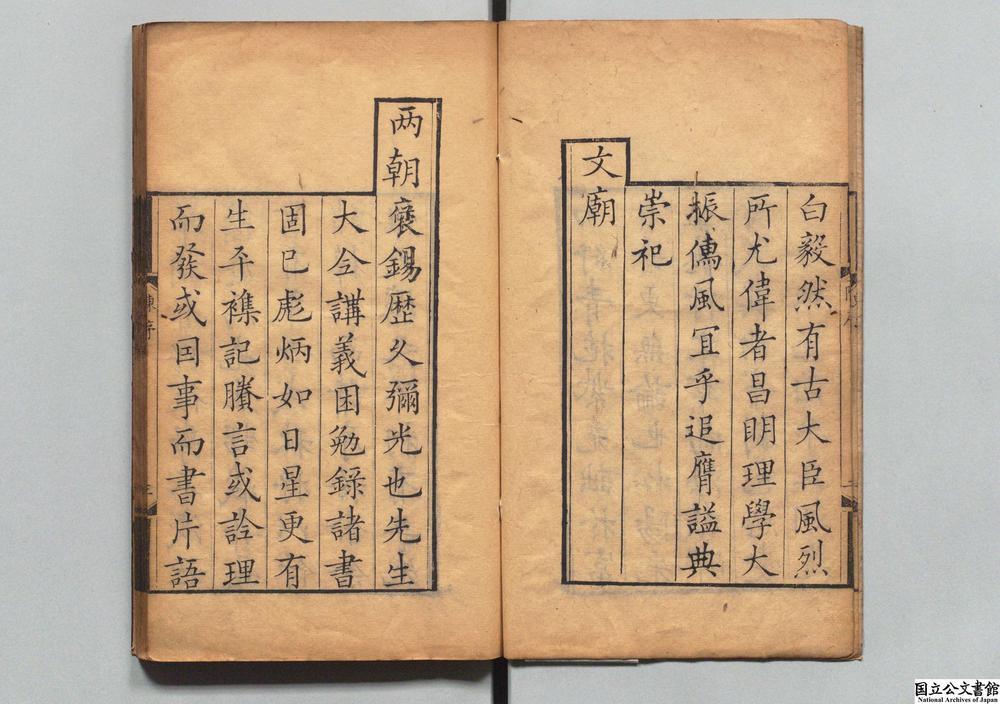 白毅然有古大臣風烈
所尤偉者昌明理學大
振儒風冝乎追膺謚典
崇祀
文廟
两朝襃錫歷久彌光也先生
大全講義困勉錄諸書
固已彪炳如日星更有
生平襍記賸言或詮理
而發或因事而書片語
陳序
国立公文書館
National Archives of Japan